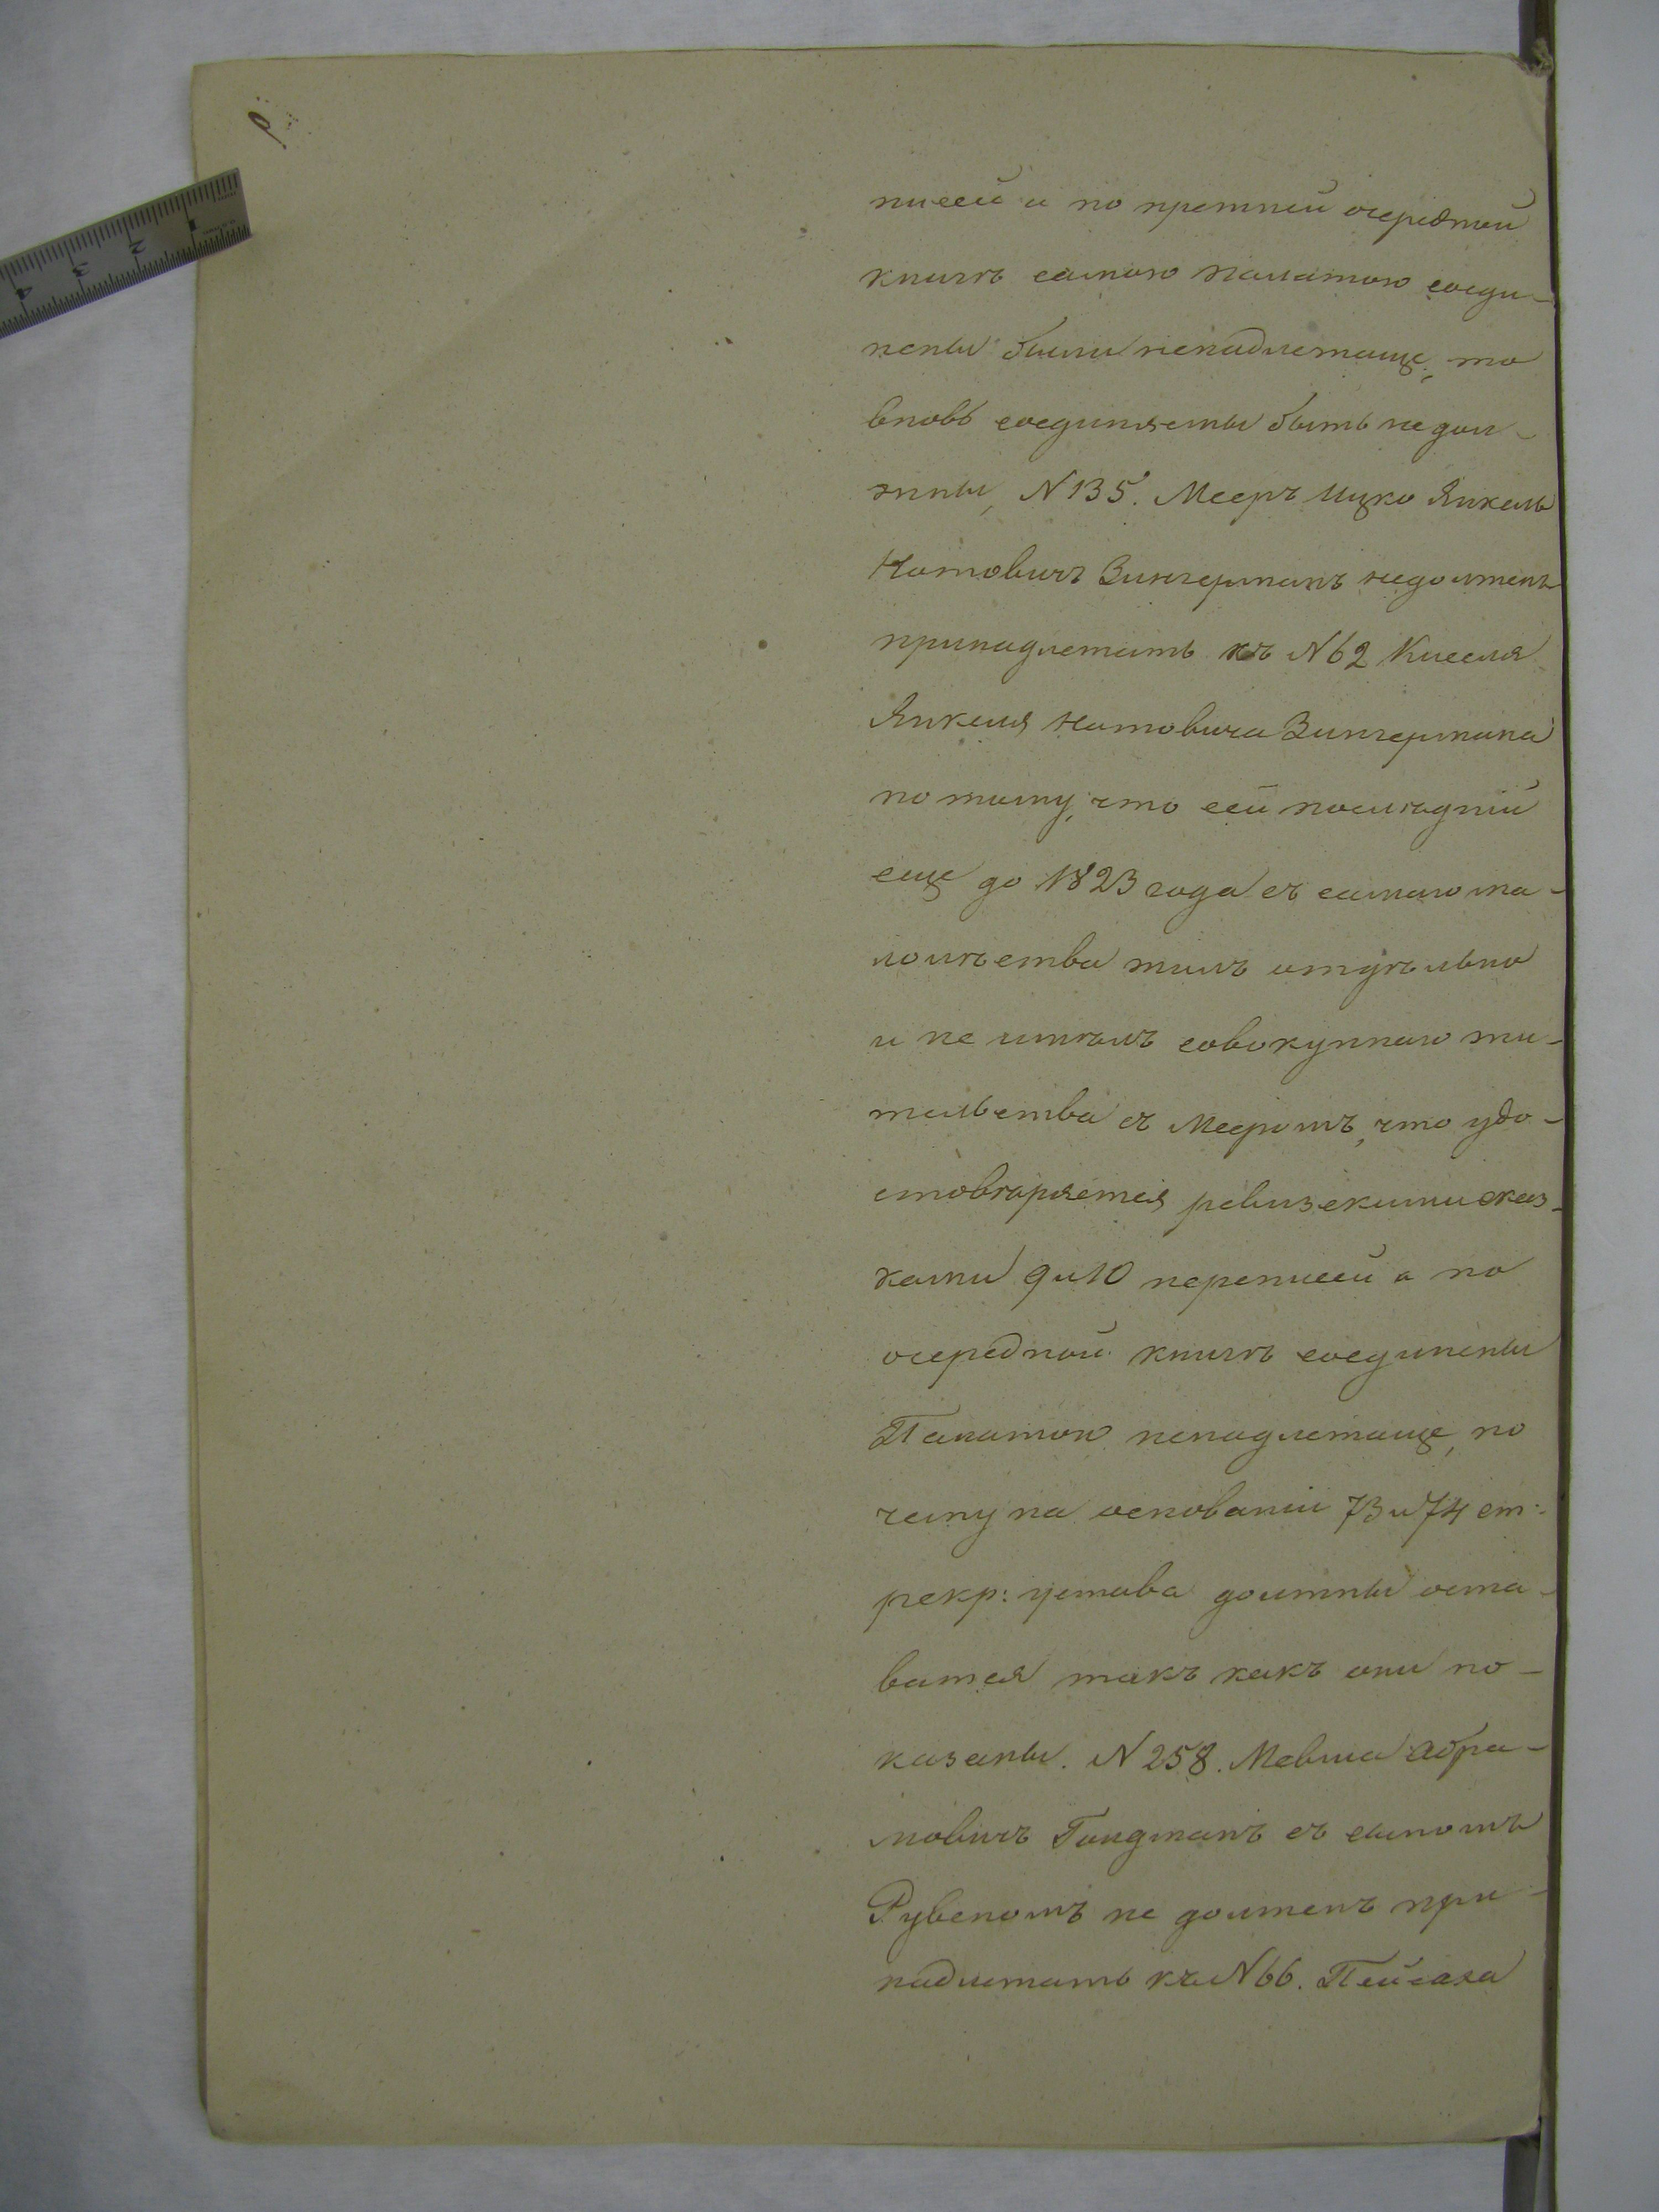 писей и по прежней очередной
книгѣ самою палатою соеди-
нены были ненадлежаще, то
вновь соединяемы быть не дол-
жны, N 135. Мееръ Ицко Янкель
Нотовичъ Зингерманъ недолженъ
принадлежать къ N 62 Киселя
Янкеля Нотовича Зингермана
по тому, что сей послѣдній
еще до 1823 года съ самаго ма-
лолѣтства жилъ отдѣльно
и не имѣлъ совокупнаго жи-
тельства съ Мееромъ, что удо-
стовѣряется ревизскими сказ-
ками 9 и 10 переписей а по
очередной книгѣ соединены
Палатою ненадлежаще, по
чему на основаніи 73 и 74 ст:
рекр: устава должны оста-
ватся такъ какъ они по-
казаны. N 258. Мевша Абра-
мовичъ Гондманъ съ сыномъ
Рувеномъ не долженъ при-
надлежать къ N 66. Пейсаха